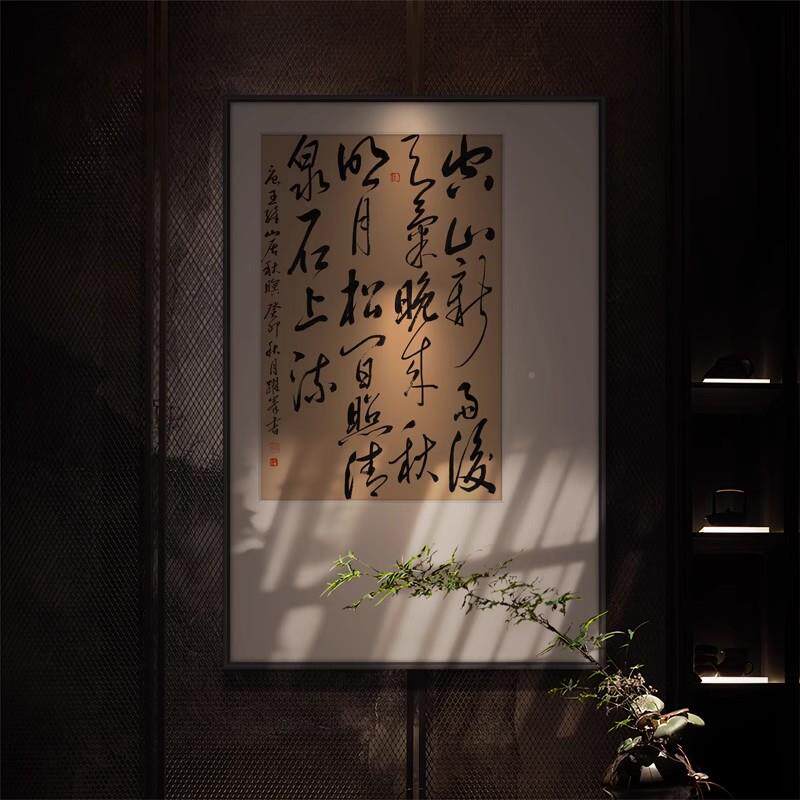 空山新雨後
天氣晚來秋
明月松間照清
泉石上流
唐王維山居秋暝 癸卯秋月躍峯書